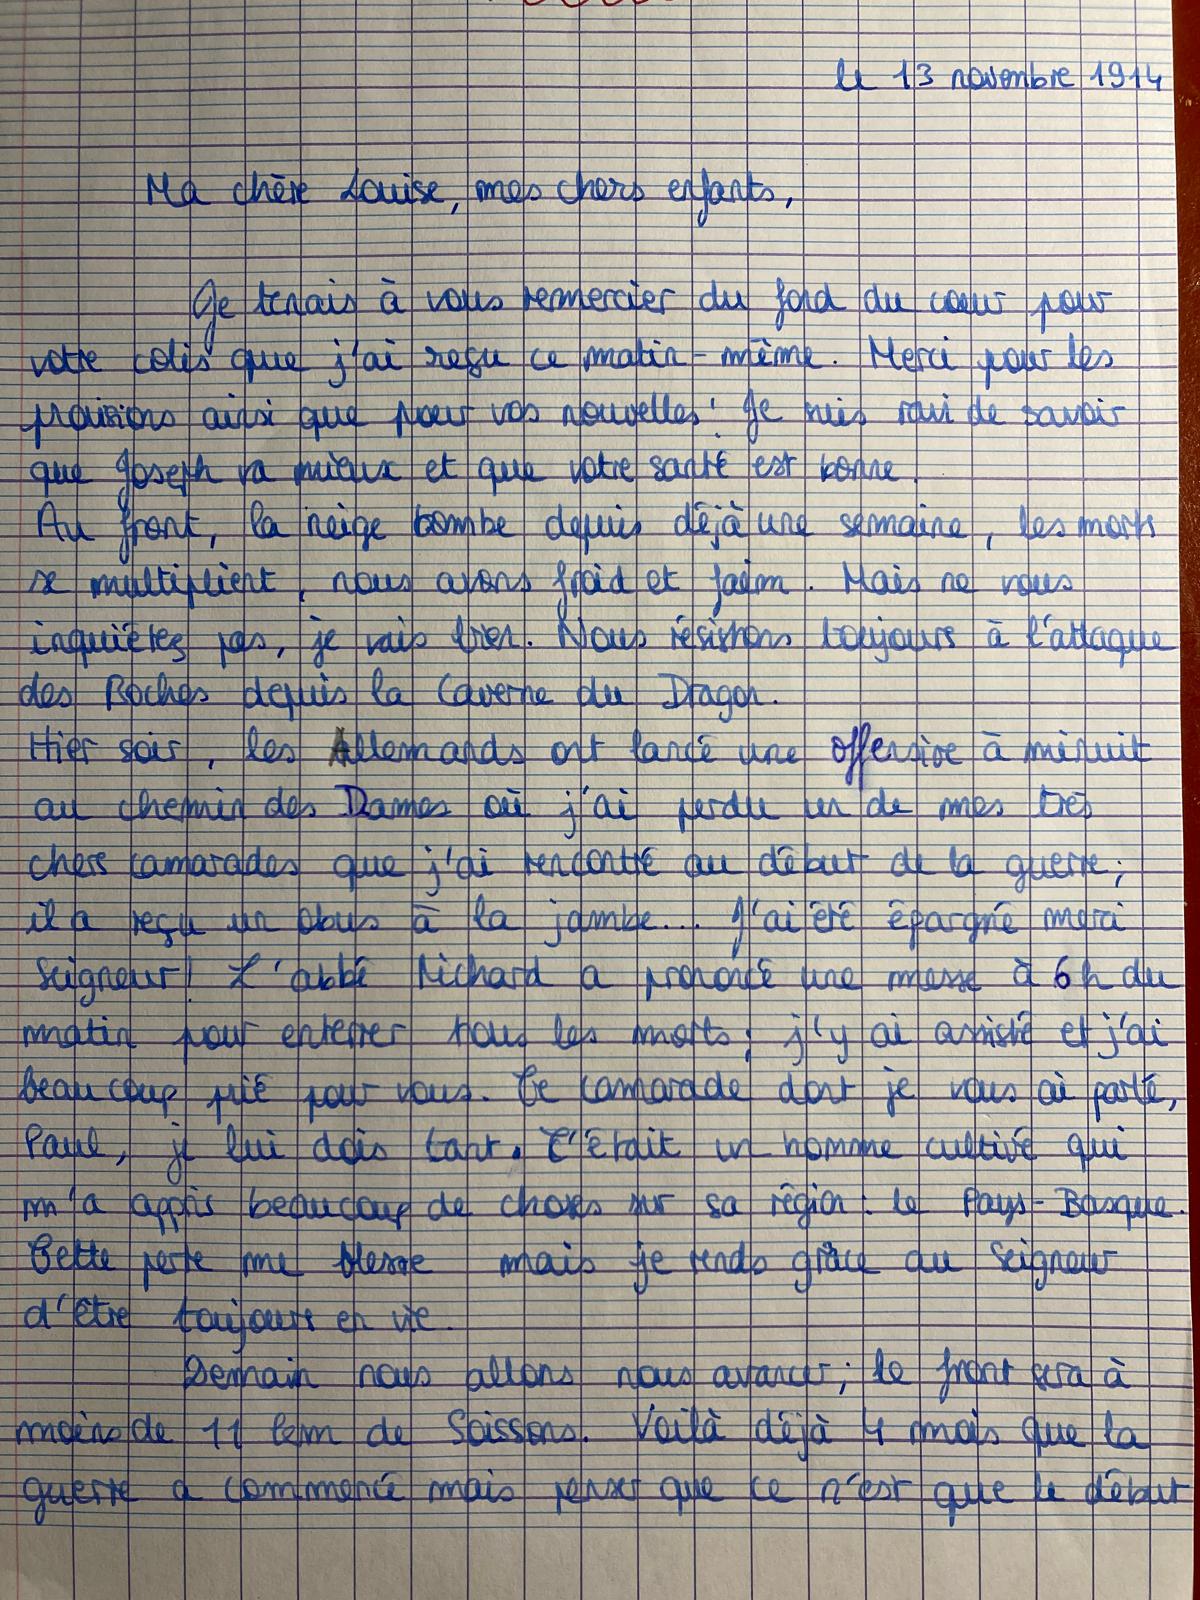 le 13 novembre 1914
Ma chère Louise, mes chers enfants,
Je tenais à vous remercier du fond du cœur pour
votre colis que j'ai reçu ce matin-même. Merci pour les
provisions ainsi que pour vos nouvelles. Je suis ravi de savoir
que Joseph va mieux et que votre santé est bonne.
Au front, la neige tombe depuis déjà une semaine, les morts
se multiplient, nous avons froid et faim. Mais ne vous
inquiétez pas, je vais bien. Nous résistons toujours à l'attaque
des Boches depuis la Caverne du Dragon.
Hier soir, les Allemands ont lancé une offensive à minuit
au chemin des Dames où j'ai perdu un de mes très
chers camarades que j'ai rencontré au début de la guerre;
il a reçu un obus à la jambe... J'ai été épargné merci
Seigneur! L'abbé Richard a prononcé une messe à 6h du
matin pour enterrer tous les morts; j'y ai assisté et j'ai
beaucoup prié pour vous. Ce camarade dont je vous ai parlé,
Paul, je lui dois tant. C'était un homme cultivé qui
m'a appris beaucoup de choses sur sa région: le Pays-Basque.
Cette perte me blesse mais je rends grâce au Seigneur
d'être toujours en vie.
Demain nous allons nous avancer; le front sera à
moins de 11 km de Soissons. Voilà déjà 4 mois que la
guerre a commencé mais penser que ce n'est que le début